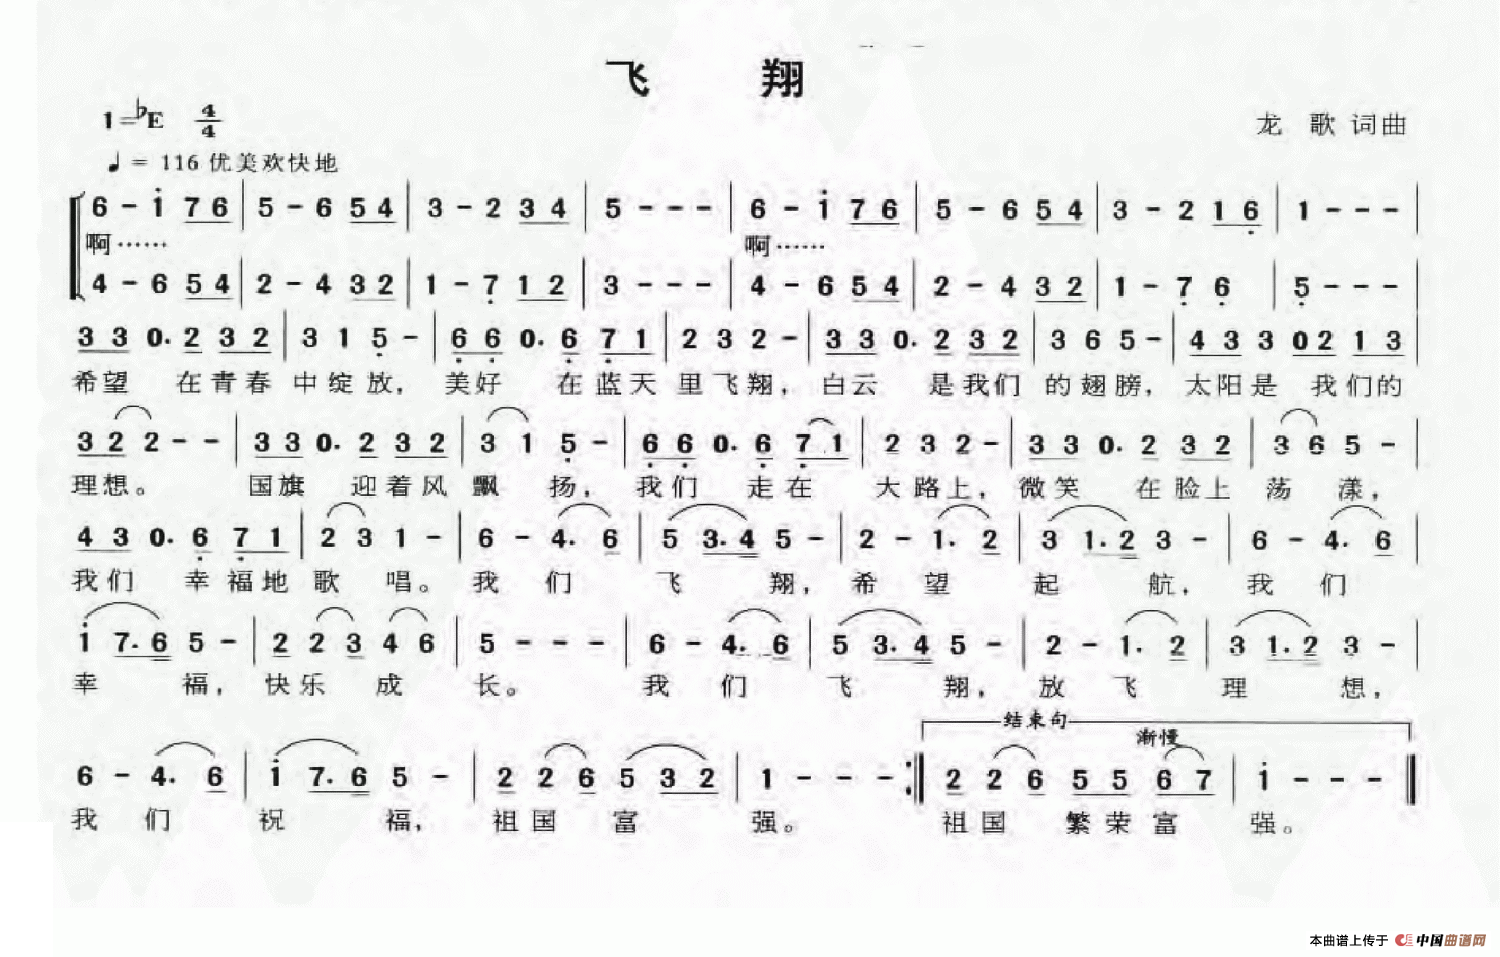 飞 翔
1=♭E 4/4
龙 歌 词曲
♩= 116 优美欢快地
6 - i 7 6 | 5 - 6 5 4 | 3 - 2 3 4 | 5 - - - | 6 - i 7 6 | 5 - 6 5 4 | 3 - 2 1 6 | 1 - - - |
啊…… 啊……
4 - 6 5 4 | 2 - 4 3 2 | 1 - 7 1 2 | 3 - - - | 4 - 6 5 4 | 2 - 4 3 2 | 1 - 7 6 | 5 - - - |
3 3 0. 2 3 2 | 3 1 5 - | 6 6 0. 6 7 1 | 2 3 2 - | 3 3 0. 2 3 2 | 3 6 5 - | 4 3 3 0 2 1 3 |
希望 在青春 中绽放, 美好 在蓝天 里飞翔, 白云 是我们 的翅膀, 太阳是 我们的
3 2 2 - - | 3 3 0. 2 3 2 | 3 1 5 - | 6 6 0. 6 7 1 | 2 3 2 - | 3 3 0. 2 3 2 | 3 6 5 - |
理想。 国旗 迎着风 飘 扬, 我们 走在 大路上, 微笑 在脸上 荡 漾,
4 3 0. 6 7 1 | 2 3 1 - | 6 - 4. 6 | 5 3. 4 5 - | 2 - 1. 2 | 3 1. 2 3 - | 6 - 4. 6 |
我们 幸福地 歌 唱。 我 们 飞 翔, 希 望 起 航, 我 们
i 7. 6 5 - | 2 2 3 4 6 | 5 - - - | 6 - 4. 6 | 5 3. 4 5 - | 2 - 1. 2 | 3 1. 2 3 - |
幸 福, 快乐 成 长。 我 们 飞 翔, 放 飞 理 想,
结束句
渐慢
6 - 4. 6 | i 7. 6 5 - | 2 2 6 5 3 2 | 1 - - - :‖ 2 2 6 5 5 6 7 | i - - - ‖
我 们 祝 福, 祖国 富 强。 祖国 繁荣富 强。
本曲谱上传于 中国曲谱网